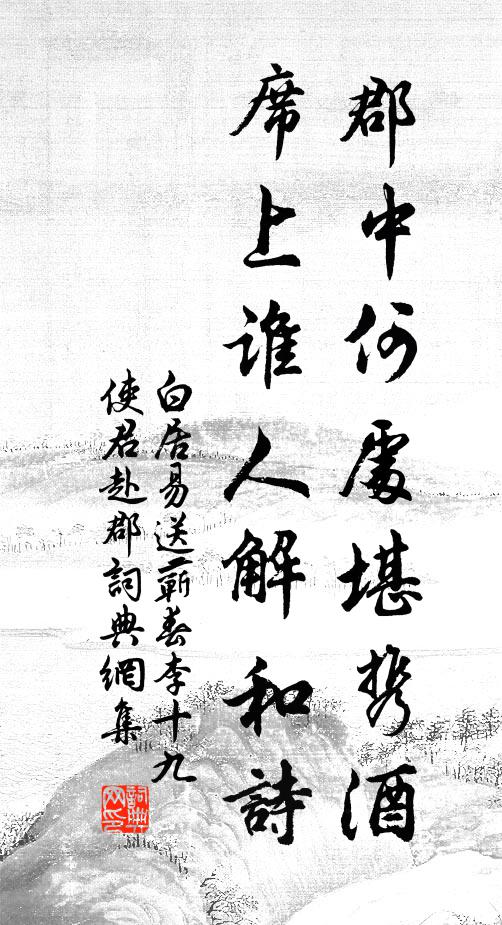 郡中何處堪携酒
席上誰人解和詩
白居易送蘄春李十九
使君赴郡詞典網集
詞典网印